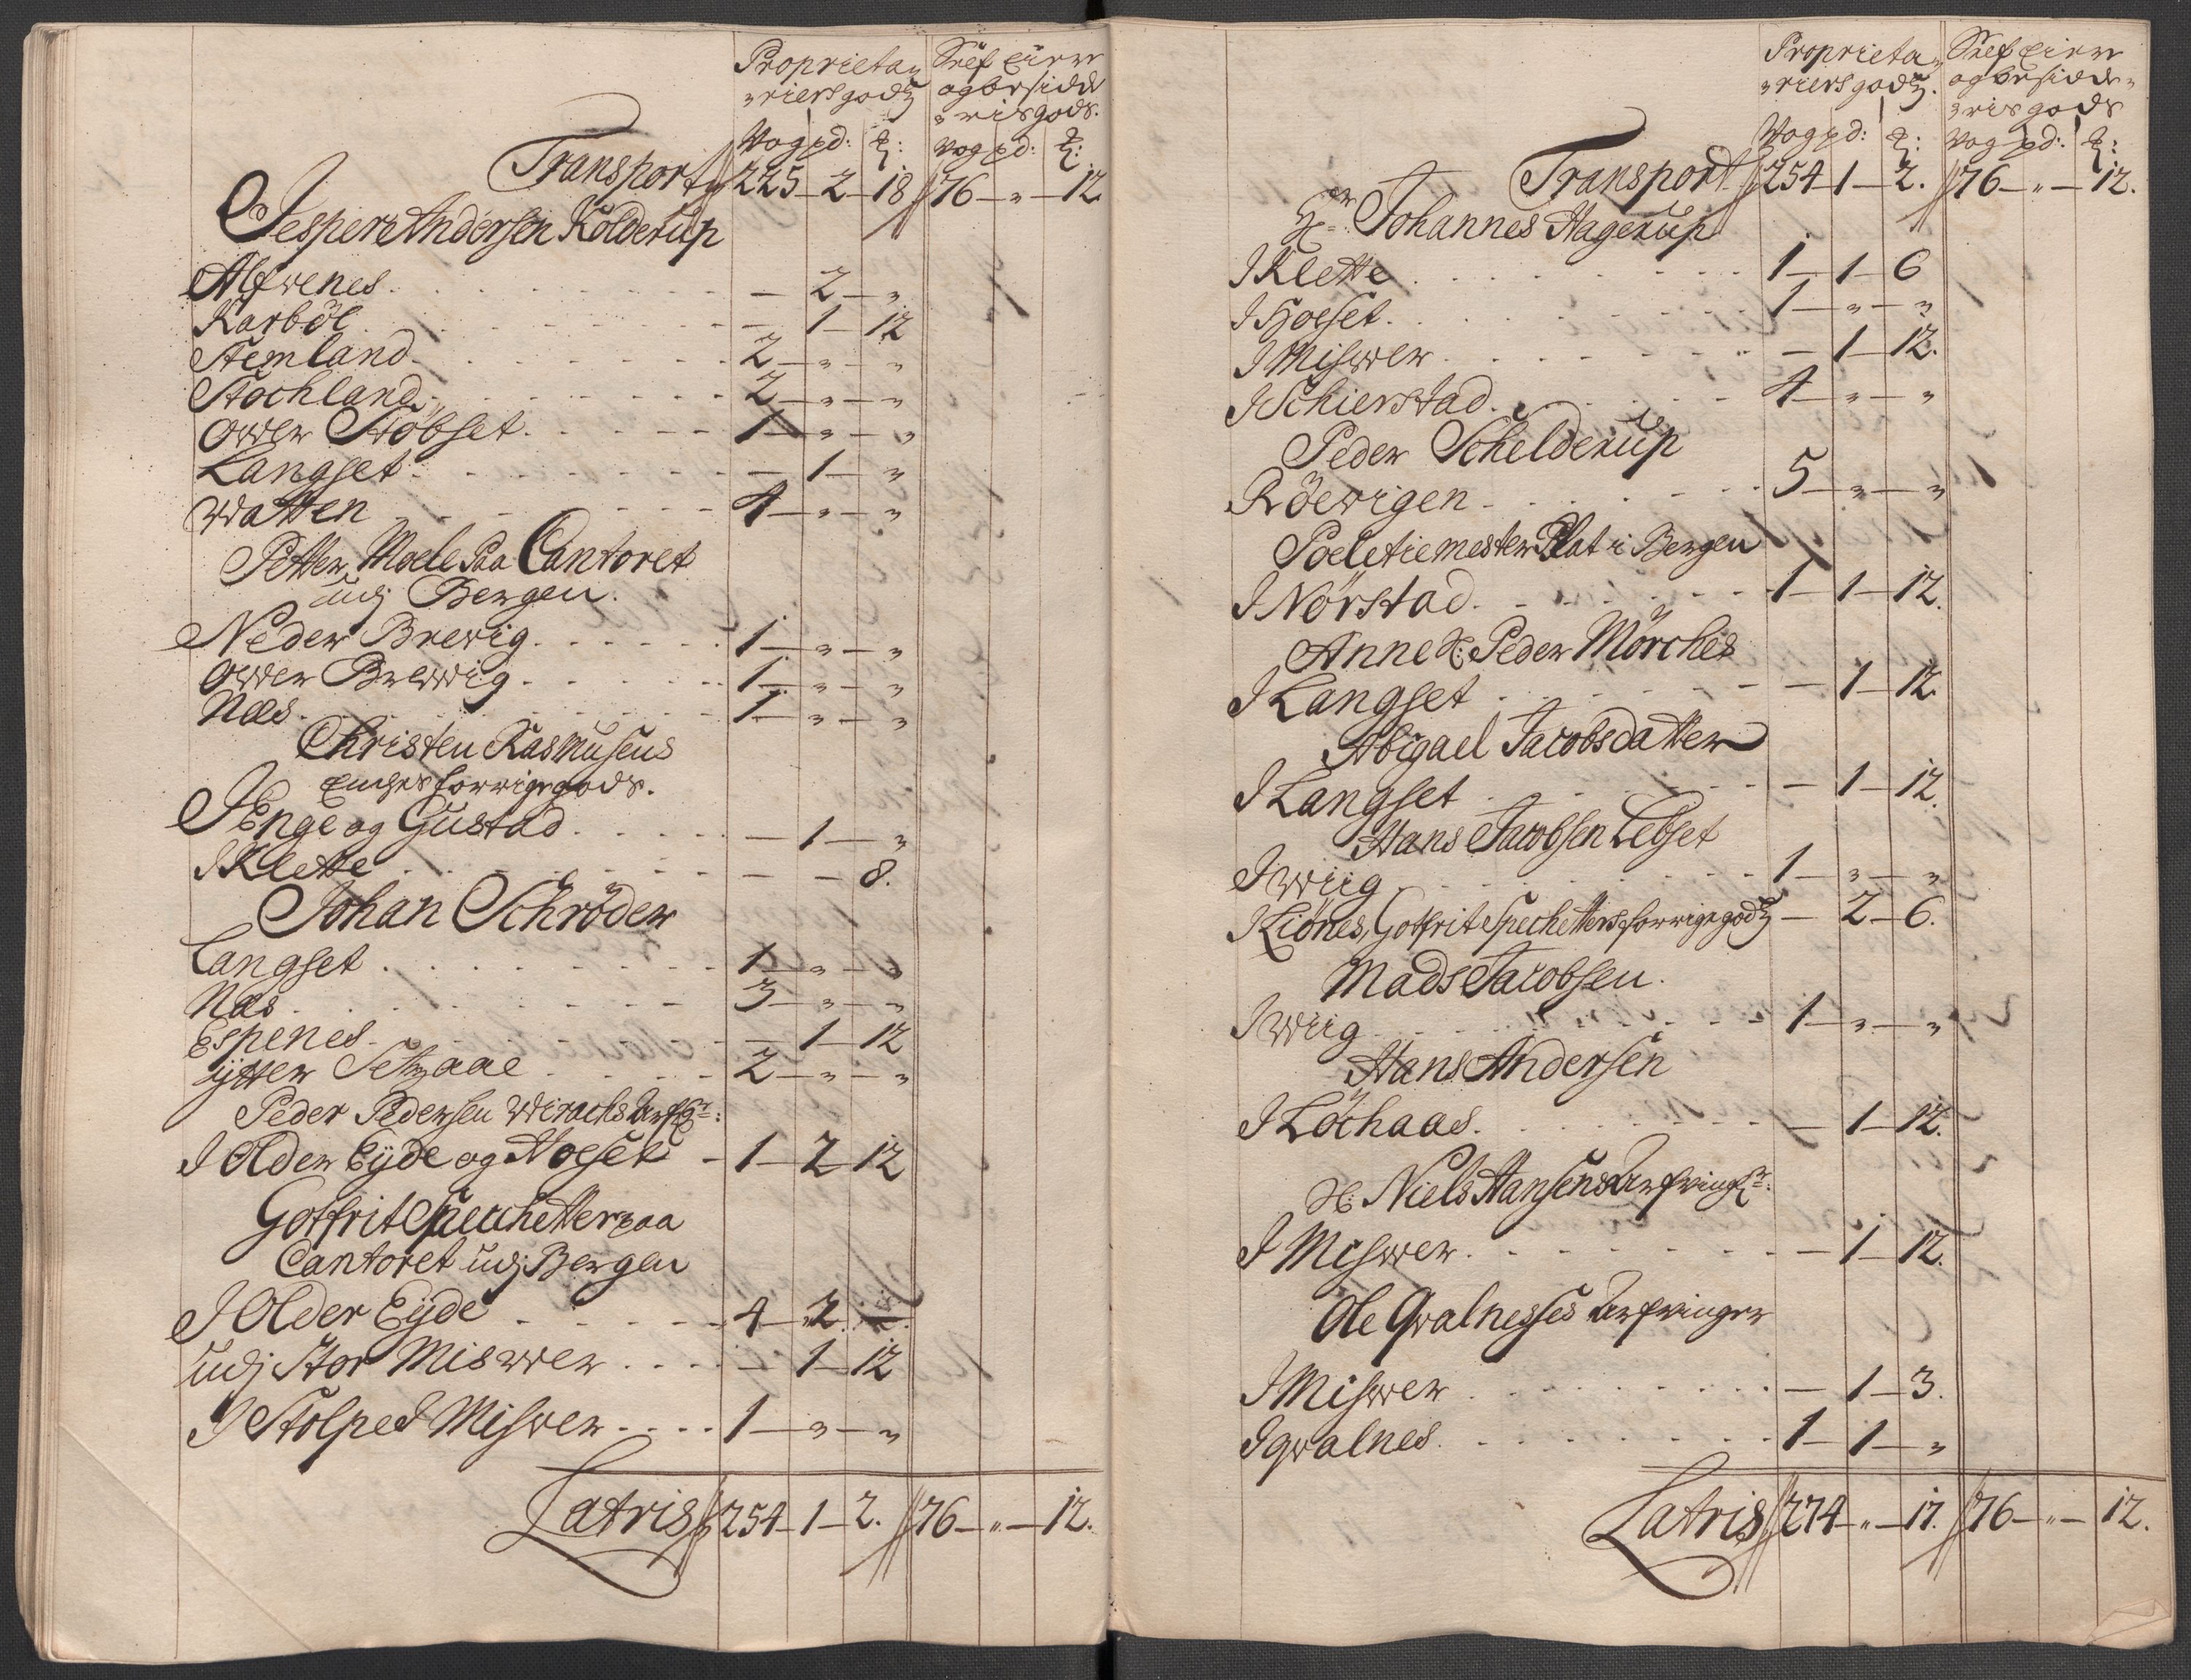 Proprieta= Sielf Eier
=riers godtz og besidde
=ris gods.
Wog pd: ℔: Wog pd: ℔:
Transport 225 – 2 – 18 76 – „ – 12
Jesper Andersen Kolderup
Alfvenes – 2 – „
Karböl – 1 – 12
Stemland 2 – „ – „
Stochland 2 – „ – „
Ower Stöbset 1 – „ – „
Langset – 1 – „
Watten 4 – „ – „
Petter Moele Paa Cantoret
udj Bergen.
Neder Brevig 1 – „ – „
Ower Brewig 1 – „ – „
Næs 1 – „ – „
Christen Rasmusens
Enches forrige gods.
J Enge og Gustad – 1 – „
J Klette – – 8.
Johan Schröder
Langset 1 – „ – „
Næs 3 – „ – „
Espenes – 1 – 12
ytter Setzaae 2 – „ – „
Peder Pedersen
J Older Eyde og Hoeset – 1 – 2 – 12
Gotfrit Spechetter paa
Cantoret udj Bergen
J Older Eyde 4 – 2
udj Stor Miswer – 1 – 12
J Stolpes Miswer 1 – „ – „
Latris 254 – 1 – 2. 76 – „ – 12.
Proprieta= Sielf Eier
=riers godtz. og besidde=
=ris gods
Wog pd: ℔: Wog pd: ℔:
Transport 254 – 1 – 2. 76 – „ – 12.
Hr: Johannes Hagerup
J Klette 1 – 1 – 6
J Hoeset 1 – „ – „
J Miswer – 1 – 12.
J Schierstad 4 – „ – „
Peder Schelderup
Röewigen 5 – „ – „
Poeletiemester Plat i Bergen
J Nörstad 1 – 1 – 12.
Anne Sl: Peder Mörches
J Langset – 1 – 12.
Abigael Jacobsdatter
J Langset – 1 – 12.
Hans Jacobsen Lebset
J Wiig 1 – „ – „
J Kiönes, Gotfrit Spechetters forrige godtz – 2 – 6.
Mads Jacobsen.
J Wiig 1 – „ – „
Hans Andersen
J Löchaas – 1 – 12.
Sl: Niels Hansens Arfving:
J Miswer – 1 – 12.
Ole Qvalnesses Arfvinger
J Miswer – 1 – 3.
J qvalnes 1 – 1 – „
Latris 274 – „ – 17. 76 – „ – 12.